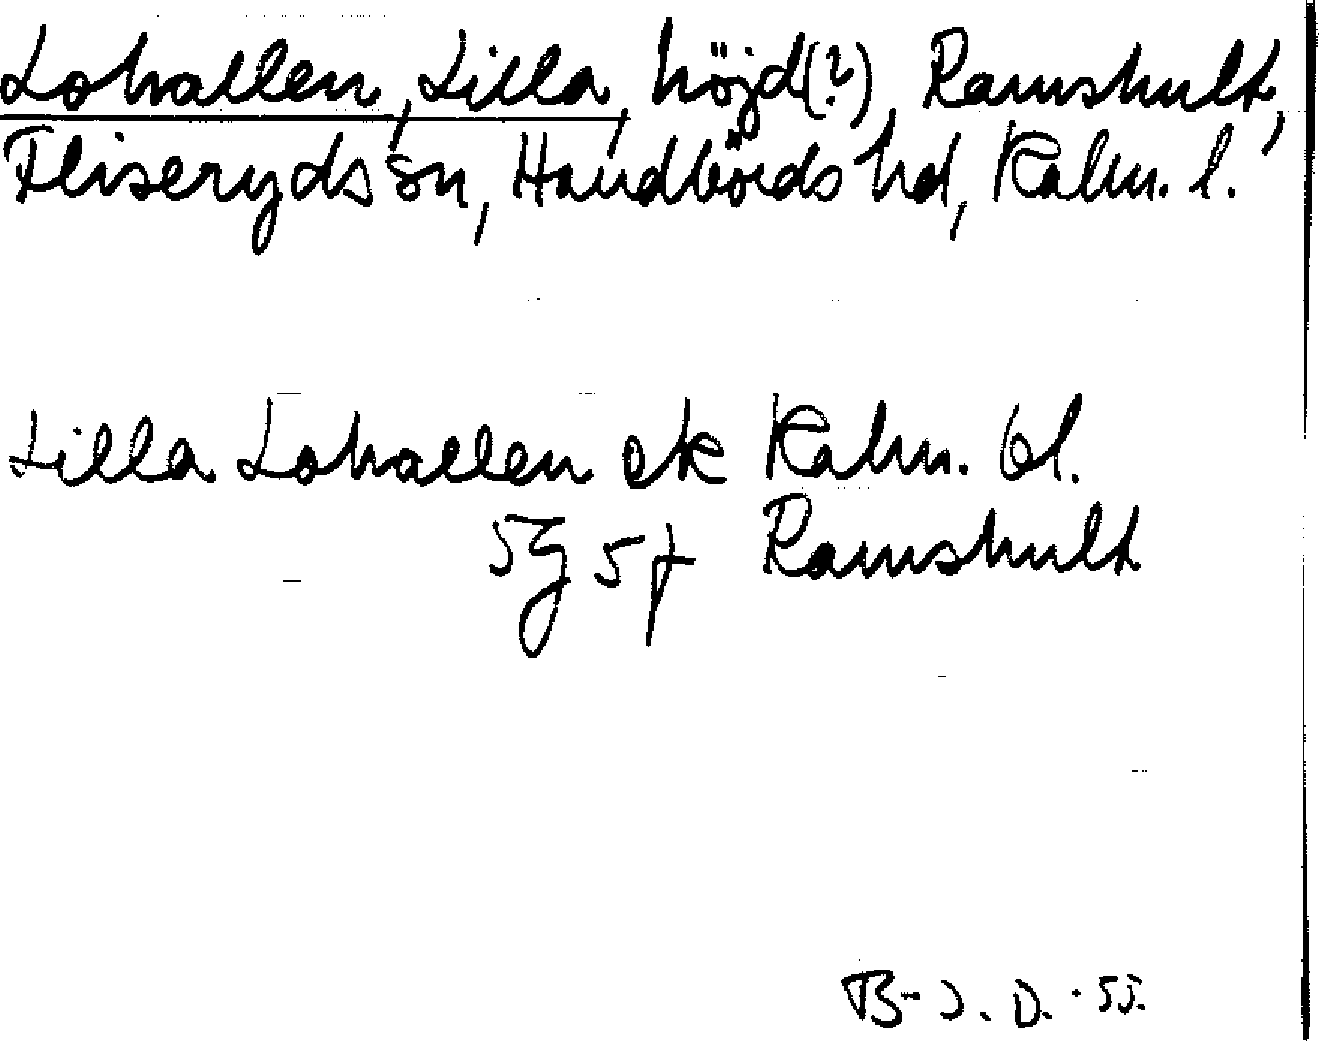 Lohallen, Lilla, höjd(?), Ramshult,
Fliseryds sn, Handbörds hd, Kalm. l.
Lilla Lohallen ek Kalm. bl.
5g 5f Ramshult
B-J. D. -55.